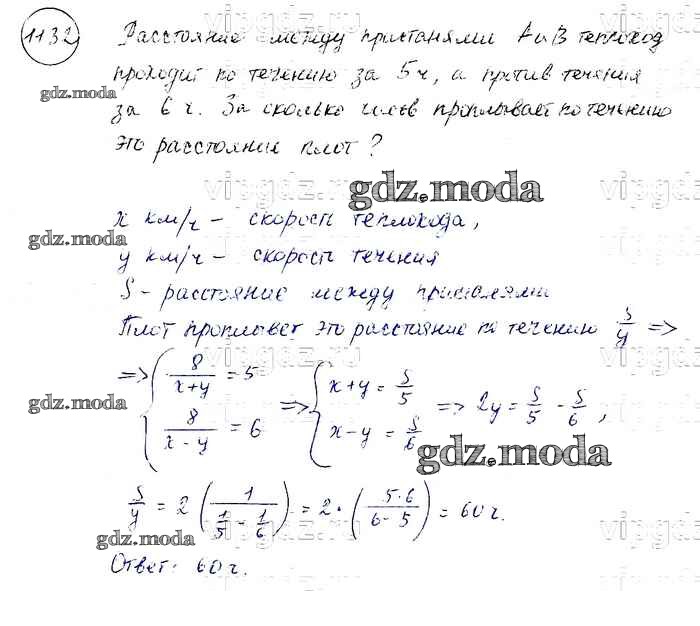 1132) Расстояние между пристанями А и В теплоход
проходит по течению за 5 ч, а против течения
gdz.moda
за 6 ч. За сколько часов проплывает по течению
это расстояние плот?
vipgdz.ru
gdz.moda
х км/ч - скорость теплохода,
gdz.moda
у км/ч - скорость течения
S - расстояние между пристанями
Плот проплывет это расстояние по течению S/y =>
=> { 8/(x+y) = 5 => { x+y = S/5 => 2y = S/5 - S/6,
8/(x-y) = 6 x-y = S/6
gdz.moda
gdz.moda
S/y = 2 (1/(1/5 - 1/6)) = 2 · (5·6/(6-5)) = 60 ч.
gdz.moda
Ответ: 60 ч.
gdz.moda